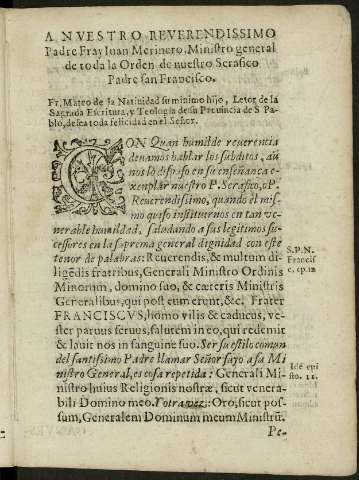 A NVESTRO REVERENDISSIMO
Padre Fray Iuan Merinero, Ministro general
de toda la Orden de nuestro Serafico
Padre san Francisco.
Fr. Mateo de la Natiuidad su minimo hijo, Letor de la
Sagrada Escritura, y Teologia de su Prouincia de S. Pa-
blo, desea toda felicidad en el Señor.
CON Quan humilde reuerencia
deuamos hablar los subditos, aũ
nos lo dispuso en su enseñança e-
xemplar nuestro P. Serafico, o P.
Reuerendissimo, quando èl mis-
mo quiso instituirnos en tan ve-
nerable humildad, saludando a sus legitimos su-
cessores en la suprema general dignidad con este
tenor de palabras: Reuerendis, & multum di-
ligẽdis fratribus, Generali Ministro Ordinis
Minorum, domino suo, & cæteris Ministris
Generalibus, qui post eum erunt, &c. Frater
FRANCISCVS, homo vilis & caducus, ve-
ster paruus seruus, salutem in eo, qui redemit
& lauit nos in sanguine suo. Ser su estilo comun
del santissimo Padre llamar Señor suyo a su Mi
nistro General, es cosa repetida: Generali Mi-
nistro huius Religionis nostræ, sicut venera-
bili Domino meo. Y otra vez: Oro, sicut pos-
sum, Generalem Dominum meum Ministrũ.
Pe-
S.P.N.
Francis
c. ep. 12
Idẽ epi
sto. 11.